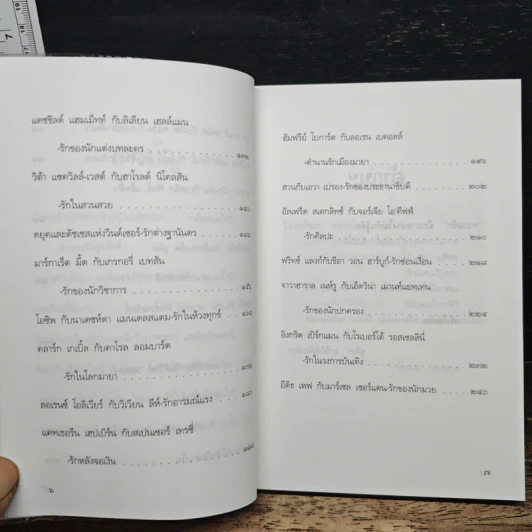 แดชชิลต์ แฮมเม็ทท์ กับลิเลียน เฮลล์แมน
-รักของนักแต่งบทละคร . . . . . . . . . ๑๓๒
วิต้า แซควิลล์-เวสต์ กับฮาโรลด์ นิโคลสัน
-รักในสวนสวย . . . . . . . . . ๑๔๐
ดยุคและดัชเชสแห่งวินด์เซอร์-รักต่างฐานันดร . . . . ๑๔๘
มาร์กาเร็ต มี้ด กับเกรกอรี่ เบทสัน
-รักของนักวิชาการ . . . . . . . . .
โอซิพ กับนาเดซห์ดา แมนเดลสแตม-รักในห้วงทุกข์ . .
คลาร์ก เกเบิ้ล กับคาโรล ลอมบาร์ด
-รักในโลกมายา . . . . . . . . .
ลอเรนซ์ โอลิเวียร์ กับวิเวียน ลีห์-รักอารมณ์แรง . . . .
แคทเธอรีน เฮปเบิร์น กับสเปนเซอร์ เทรซี่
-รักหลังจอเงิน . . . . . . . . .
๖
ฮัมฟรีย์ โบการ์ต กับลอเรน เบคอลล์
-ตำนานรักเมืองมายา . . . . . . . . . ๑๙๖
ฮวนกับเอวา เปรอง-รักของประธานาธิบดี . . . . . ๒๐๒
อัลเฟรด สเตกลิทซ์ กับจอร์เจีย โอ'คีฟฟ์
-รักศิลปะ . . . . . . . . . ๒๑๐
ฟริทซ์ แลงก์กับธีอา วอน ฮาร์บูก์-รักซ่อนเงื่อน . . . ๒๑๘
จาวาฮาราล เนห์รู กับเอ็ดวีน่า เมานท์แบทเทน
-รักของนักปกครอง . . . . . . . . . ๒๒๔
อิงกริด เบิร์กแมน กับโรเบอร์โต้ รอสเซลลินี่
-รักในวงการบันเทิง . . . . . . . . . ๒๓๒
อีดิธ เพฟ กับมาร์เซล เซอร์แดน-รักของนักมวย . . . ๒๔๐
๗